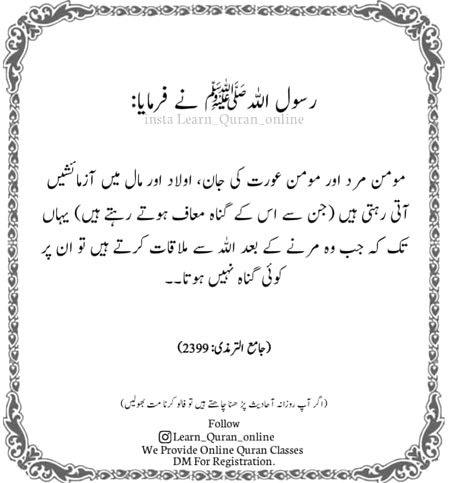 رسول اللہ ﷺ نے فرمایا:
insta Learn_Quran_online
مومن مرد اور مومن عورت کی جان، اولاد اور مال میں آزمائشیں
آتی رہتی ہیں (جن سے اس کے گناہ معاف ہوتے رہتے ہیں) یہاں
تک کہ جب وہ مرنے کے بعد اللہ سے ملاقات کرتے ہیں تو ان پر
کوئی گناہ نہیں ہوتا۔۔
(جامع الترمذی: 2399)
(اگر آپ روزانہ آحادیث پڑھنا چاہتے ہیں تو فالو کرنا مت بھولیں)
Follow
Learn_Quran_online
We Provide Online Quran Classes
DM For Registration.